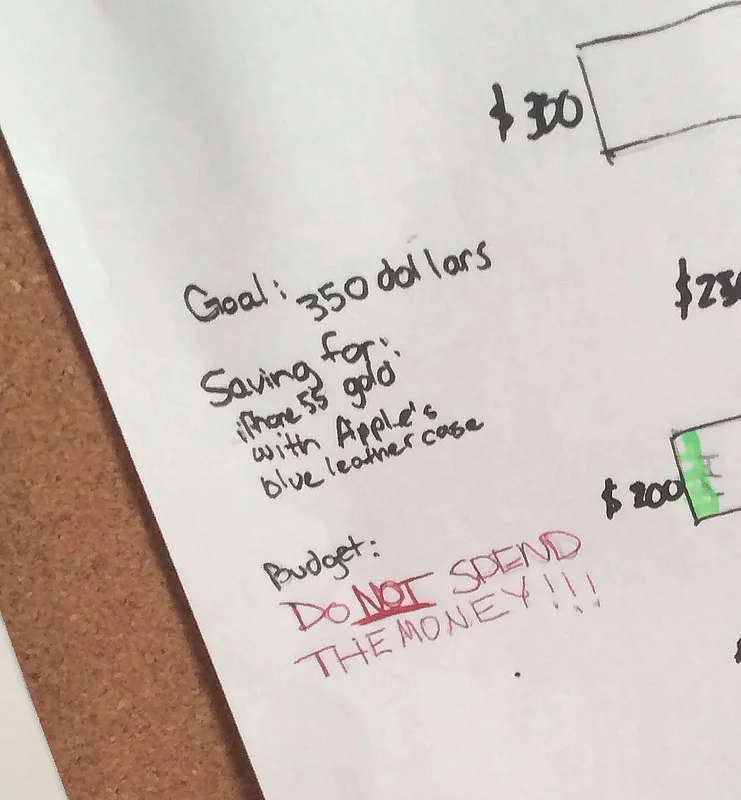 $300
Goal: 350 dollars
$25
Saving for:
iPhone 5S gold
with Apple's
blue leather case
$200
Budget:
DO NOT SPEND
THE MONEY!!!